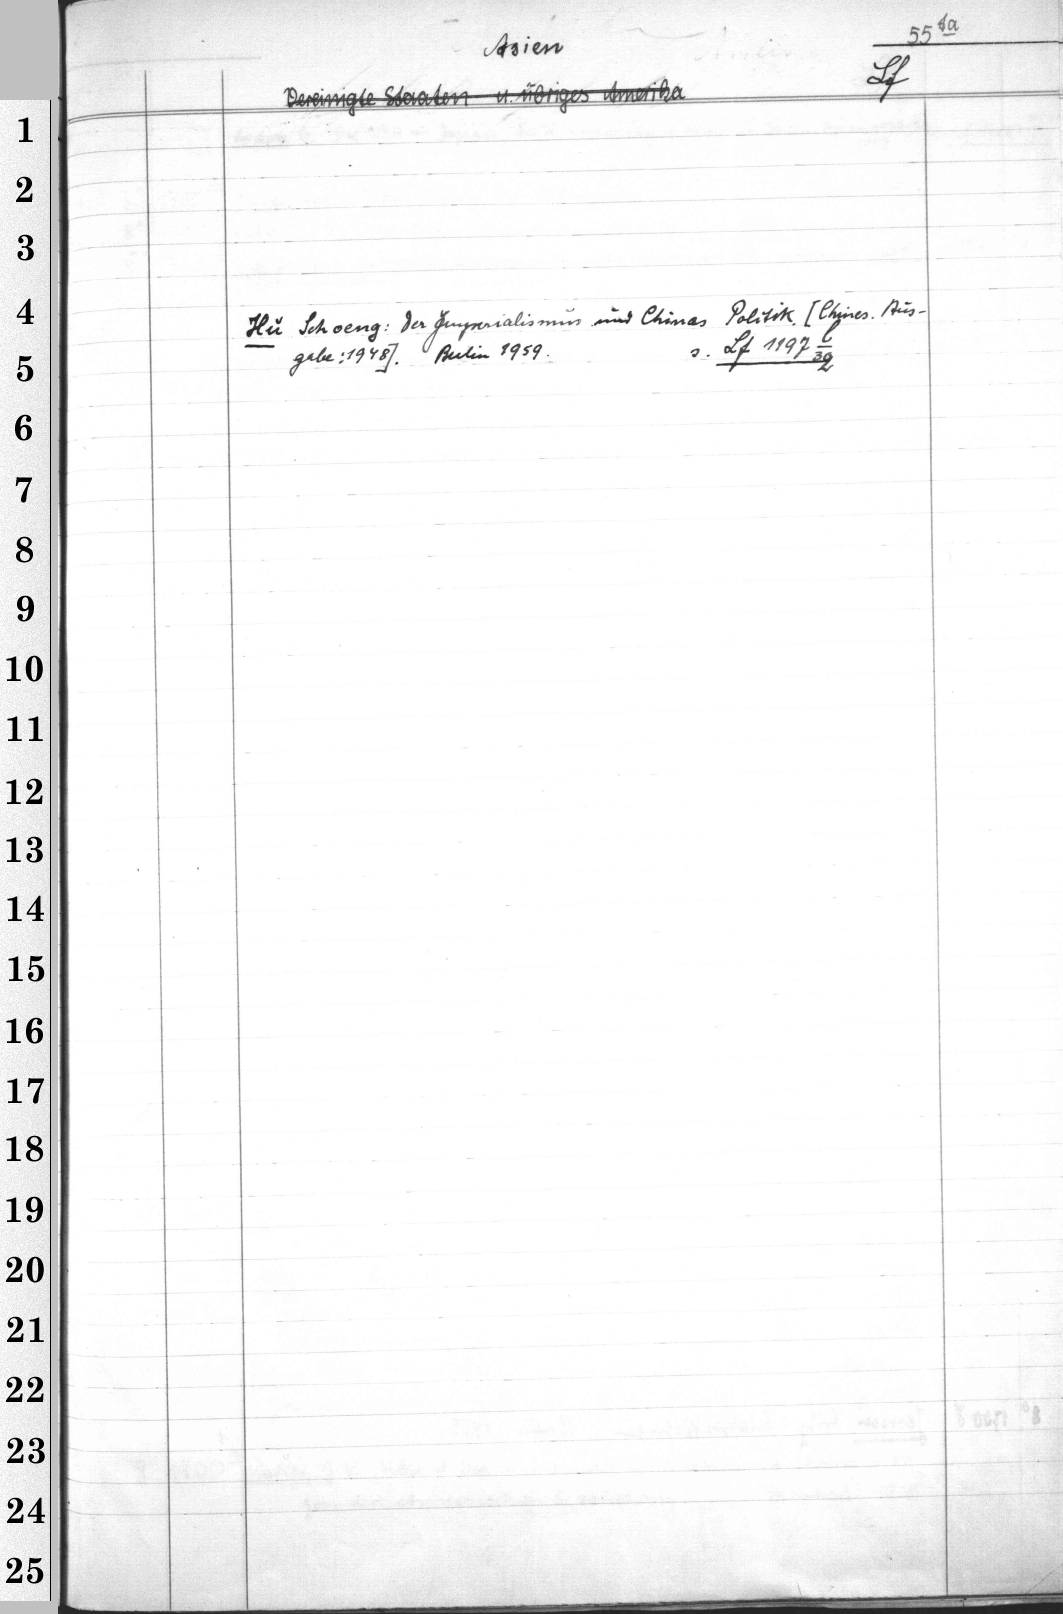 55 4a
Asien
Lf
Vereinigte Staaten u. übriges Amerika
1
2
3
4
Hŭ Schoeng: Der Imperialismus und Chinas Politik. [Chines. Aus-
gabe: 1948]. Berlin 1959. s. Lf 1197 l/39
5
6
7
8
9
10
11
12
13
14
15
16
17
18
19
20
21
22
23
24
25